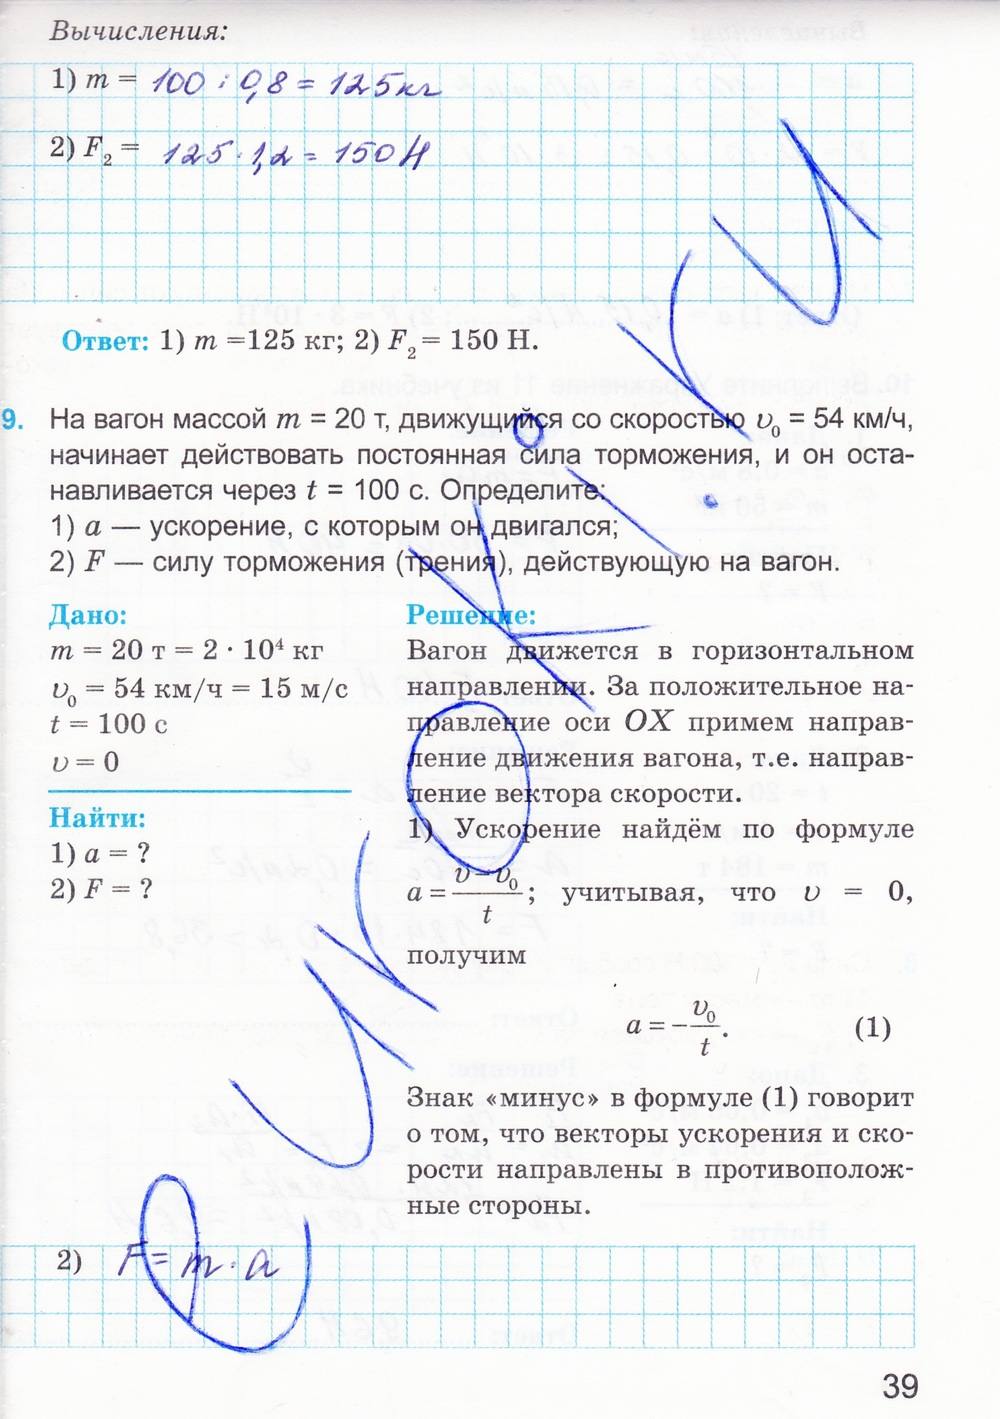 Вычисления:
1) m = 100 : 0,8 = 125 кг
2) F₂ = 125 · 1,2 = 150 Н
Ответ: 1) m =125 кг; 2) F₂ = 150 Н.
9. На вагон массой m = 20 т, движущийся со скоростью υ₀ = 54 км/ч,
начинает действовать постоянная сила торможения, и он оста-
навливается через t = 100 с. Определите:
1) a — ускорение, с которым он двигался;
2) F — силу торможения (трения), действующую на вагон.
Дано:
m = 20 т = 2 · 10⁴ кг
υ₀ = 54 км/ч = 15 м/с
t = 100 с
υ = 0
Найти:
1) a = ?
2) F = ?
Решение:
Вагон движется в горизонтальном
направлении. За положительное на-
правление оси OX примем направ-
ление движения вагона, т.е. направ-
ление вектора скорости.
1) Ускорение найдём по формуле
a = (υ – υ₀)/t; учитывая, что υ = 0,
получим
a = – υ₀/t. (1)
Знак «минус» в формуле (1) говорит
о том, что векторы ускорения и ско-
рости направлены в противополож-
ные стороны.
2) F = m · a
39